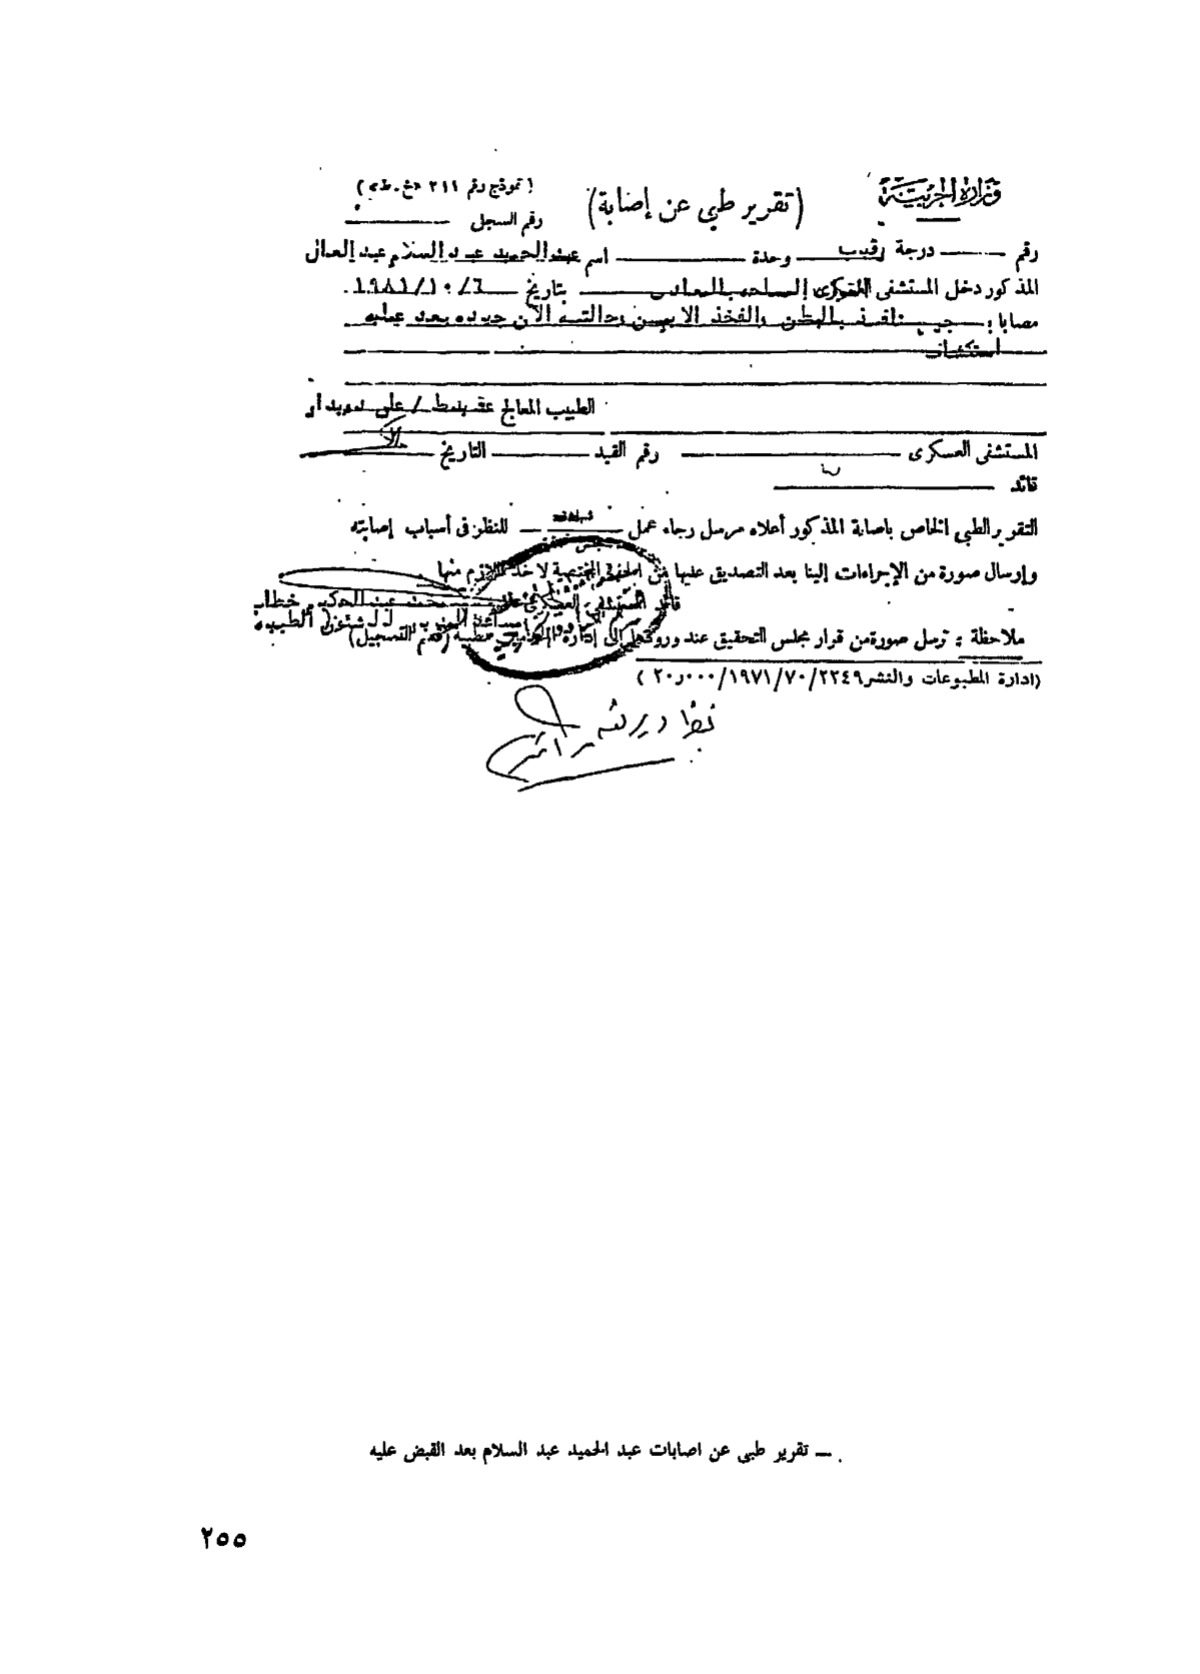 وزارة الحربية
(تقرير طبي عن إصابة)
(نموذج رقم ٢١١ «خ.ط»)
رقم السجل
رقم درجة رقيب وحدة اسم عبد الحميد عبد السلام عبد العال
المذكور دخل المستشفى العسكرى بالمعادى بتاريخ ٦/١٠/١٩٨١.
مصابا: نافذ بالبطن والفخذ الايمن وحالته الآن جيده بعد عمليه
استكشاف
الطبيب المعالج على
المستشفى العسكرى رقم القيد التاريخ
قائد
التقرير الطبى الخاص باصابة المذكور أعلاه مرسل رجاء عمل مجلس للنظر فى أسباب إصابته
وإرسال صورة من الإجراءات إلينا بعد التصديق عليها من الجهة المختصة لاخذ اللازم منها
قائد المستشفى العسكرى
ملاحظة : ترسل صورة من قرار مجلس التحقيق عند وروده إلى إدارة الخدمات الطبية (قسم التسجيل)
(ادارة المطبوعات والنشر ٢٢٤٩/٧٠/١٩٧١/٢٠٫٠٠٠)
ـ تقرير طبى عن اصابات عبد الحميد عبد السلام بعد القبض عليه
٢٥٥